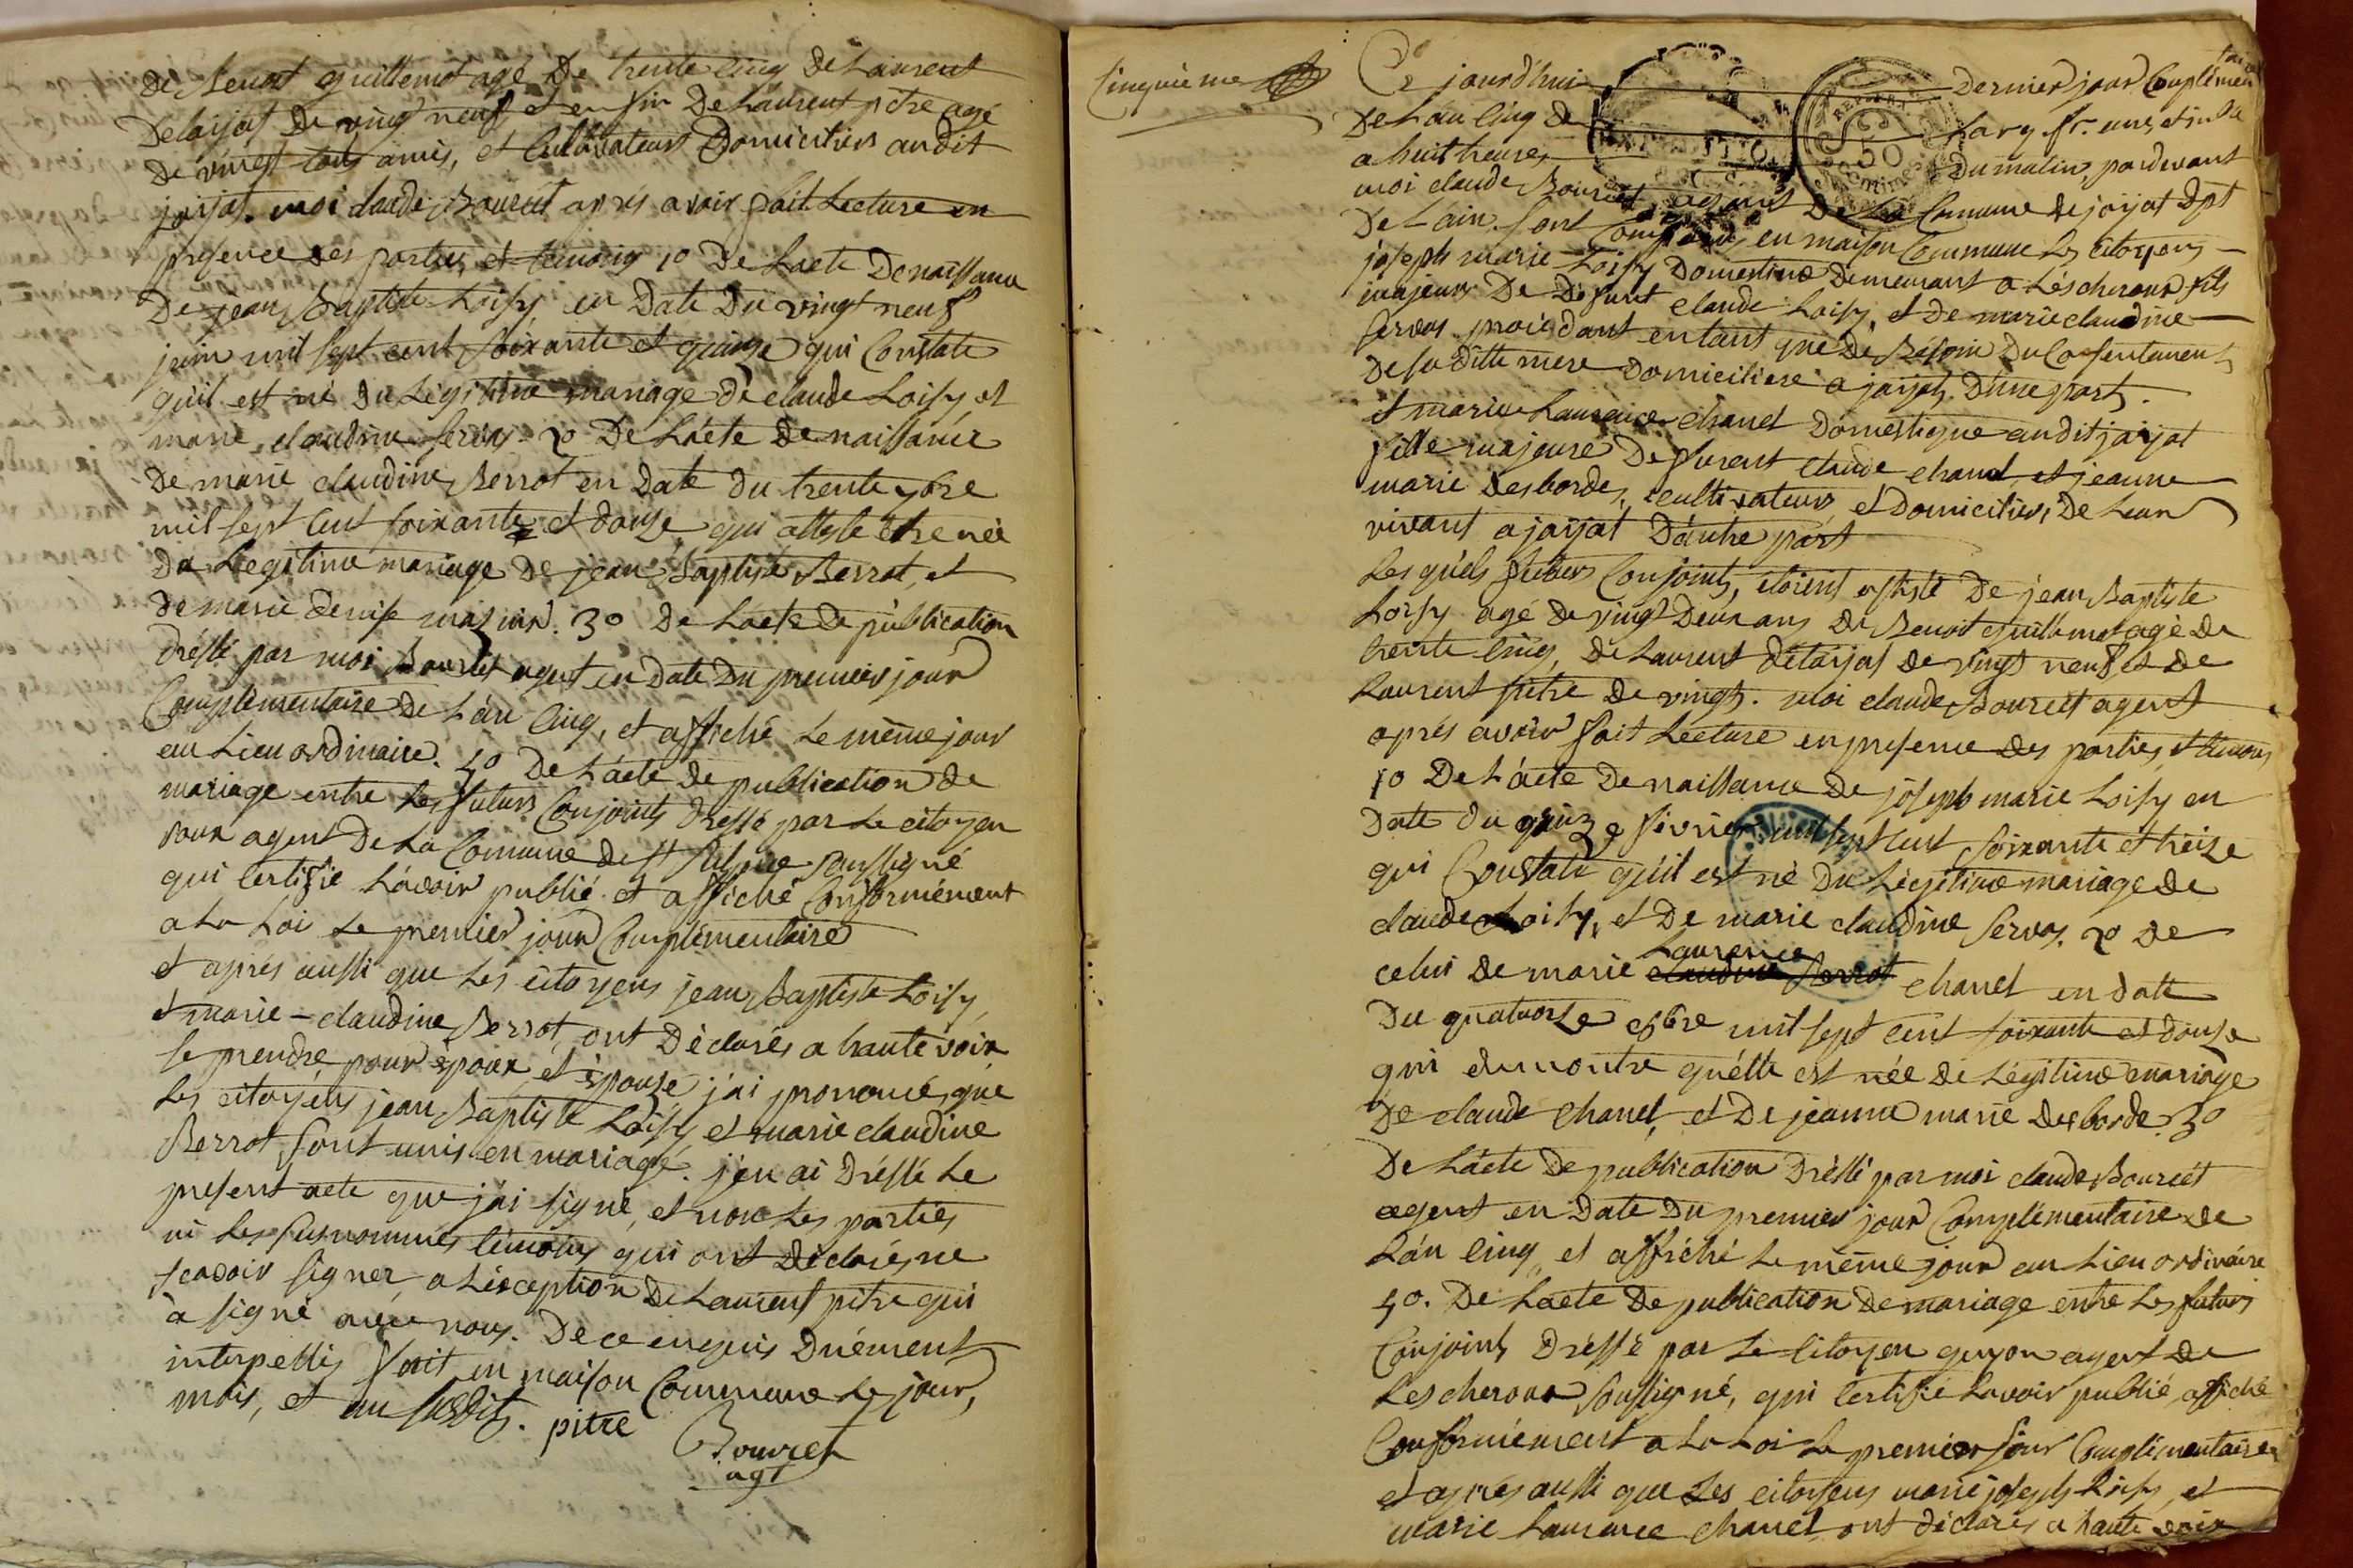 de Benoit guillemot agé de trente cinq de Laurent
delaijat de vingt neuf et enfin de Laurent pitre agé
de vingt tous amis, et Cultivateurs domiciliés au dit
jaijat. moi claude Bouret aprés avoir fait Lecture en
presence des parties, et témoins 1o de Lacte de naissance
de jean Baptiste Loisy en date du vingt neuf
juin mil sept cent soixante et quinze qui Constate
qu'il est né du Légitime mariage de claude Loisy et
marie claudine Servas. 2o de L'acte de naissance
de marie claudine Berrot en date du trente 9bre
mil sept cent soixante et douze qui atteste etre née
du Legitime mariage de jean Baptiste Berrot, et
de marie denise 3o de Lacte de publication
dréssé par moi Bouret agent en date du premier jour
Complementaire de L'an cinq, et affiché Le même jour
au Lieu ordinaire. 4o de L'acte de publication de
mariage entre Les futurs Conjoints dréssé par Le citoyen
roux agent de La Comune de st Sulpice soussigné
qui certifie L'avoir publié et affiché Conformément
a La Loi Le premier jour Complémentaire
et aprés aussi que Les citoyens jean Baptiste Loisy,
et marie-claudine Berrot, ont déclarés a haute voix
se prendre pour époux et épouse j'ai prononcé que
Les citoyens jean Baptiste Loisy et marie claudine
Berrot sont unis en mariage. j'en ai dréssé Le
present acte que j'ai signé, et non Les parties
ni Les susnommés témoins qui ont déclaré ne
scavoir signer a L'exception de Laurent pitre qui
à signé avec nous. de ce enquis duément
interpellés fait en maison Commune Les jour,
mois, et an susdits. pitre
Bouret
agt
Cinquieme
Ce jourd'hui dernier jour Complémen
taire
de L'an cinq de La rep. fr. une, et indle
a huit heures du matin, pardevant
moi claude Bouret agent de La Comune de jaijat dpt
de L'ain. sont Comparus en maison Commune Les citoyens
joseph marie Loisy domestique demeurant a Léscheroux fils
majeur de défunt claude Loisy, et de marie claudine
servas procédant entant que de Besoin du Consentement
de sa ditte mere domiciliée a jaijat d'une part.
et marie Laurence chanel domestique audit jaijat
fille majeure de claude chanel, et jeanne
marie desbordes, cultivateurs et domiciliés, de Leur
vivant a jaijat d'autre part
Lesquels futurs Conjoints, étoient assisté de jean Baptiste
Loisy agé de vingt deux ans de Benoit guillemot agé de
trente cinq, de Laurent delaijat de vingt neuf et de
Laurent pitre de vingt. moi claude Bouret agent
aprés avoir fait Lecture en presence des parties, et témoins
1o de L'acte de naissance de joseph marie Loisy en
date du quinze fevrier mil sept cent soixante et treize
qui Constate qu'il est né du Légitime mariage de
claude Loisy, et de marie claudine Servas. 2o de
Laurence
celui de marie claudine Berrot chanel en date
du quatorze mil sept cent soixante et douze
qui demontre qu'elle est née de Légitime mariage
de claude chanel, et de jeanne marie desborde 3o
de L'acte de publication dréssé par moi claude Bouret
agent en date du premier jour Complémentaire de
L'an cinq, et affiché Le même jour au Lieu ordinaire
4o. de Lacte de publication de mariage entre Les futurs
Conjoints dréssé par Le citoyen guyon agent de
Lescheroux soussigné, qui certifie Lavoir publié, affiché
Conformément a La Loi Le premier jour Complémentaire
et aprés aussi que Les citoyens marie joseph Loisy, et
marie Laurence chanel ont déclarés a haute voix